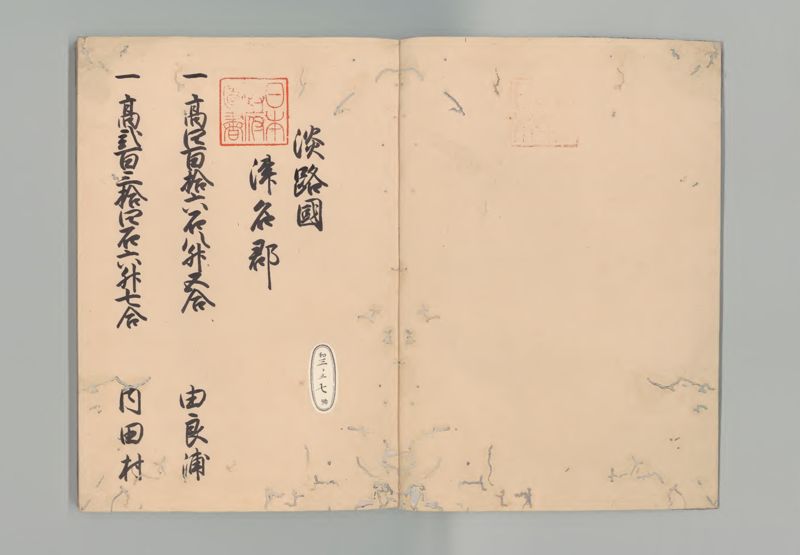 淡路國
津名郡
一高四百拾六石八升五合
由良浦
一高弐百三拾四石六升七合
内田村
日本
政府
圖書